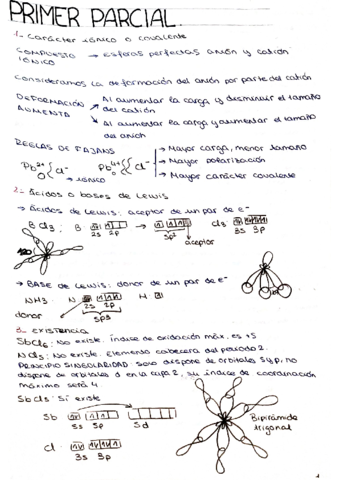 PRIMER PARCIAL.
1- Carácter iónico o covalente
COMPUESTO IÓNICO → esferas perfectas anión y catión
Consideramos la deformación del anión por parte del catión
DEFORMACIÓN AUMENTA
Al aumentar la carga y disminuir el tamaño del catión
Al aumentar la carga y aumentar el tamaño del anión
REGLAS DE FAJANS
Pb2+ Cl- Pb4+ Cl-
→ iónico
→ Mayor carga, menor tamaño
→ Mayor polarización
→ Mayor carácter covalente
2- Ácidos o bases de Lewis
→ Ácidos de Lewis: aceptor de un par de e-
BCl3: B 2s 2p → sp2 Cl: 3s 3p
aceptor
120
→ BASE de Lewis: donor de un par de e-
NH3 N 2s 2p H:
donor sp3
3- EXISTENCIA
SbCl6: No existe. Índice de oxidación máx. es +5
NCl5: No existe. Elemento cabecera del periodo 2.
PRINCIPIO SINGULARIDAD solo dispone de orbitales s y p, no
dispone de orbitales d en la capa 2, su índice de coordinación
máximo será 4
SbCl5: Sí existe
Sb 5s 5p 5d
Cl 3s 3p
Bipirámide trigonal
1